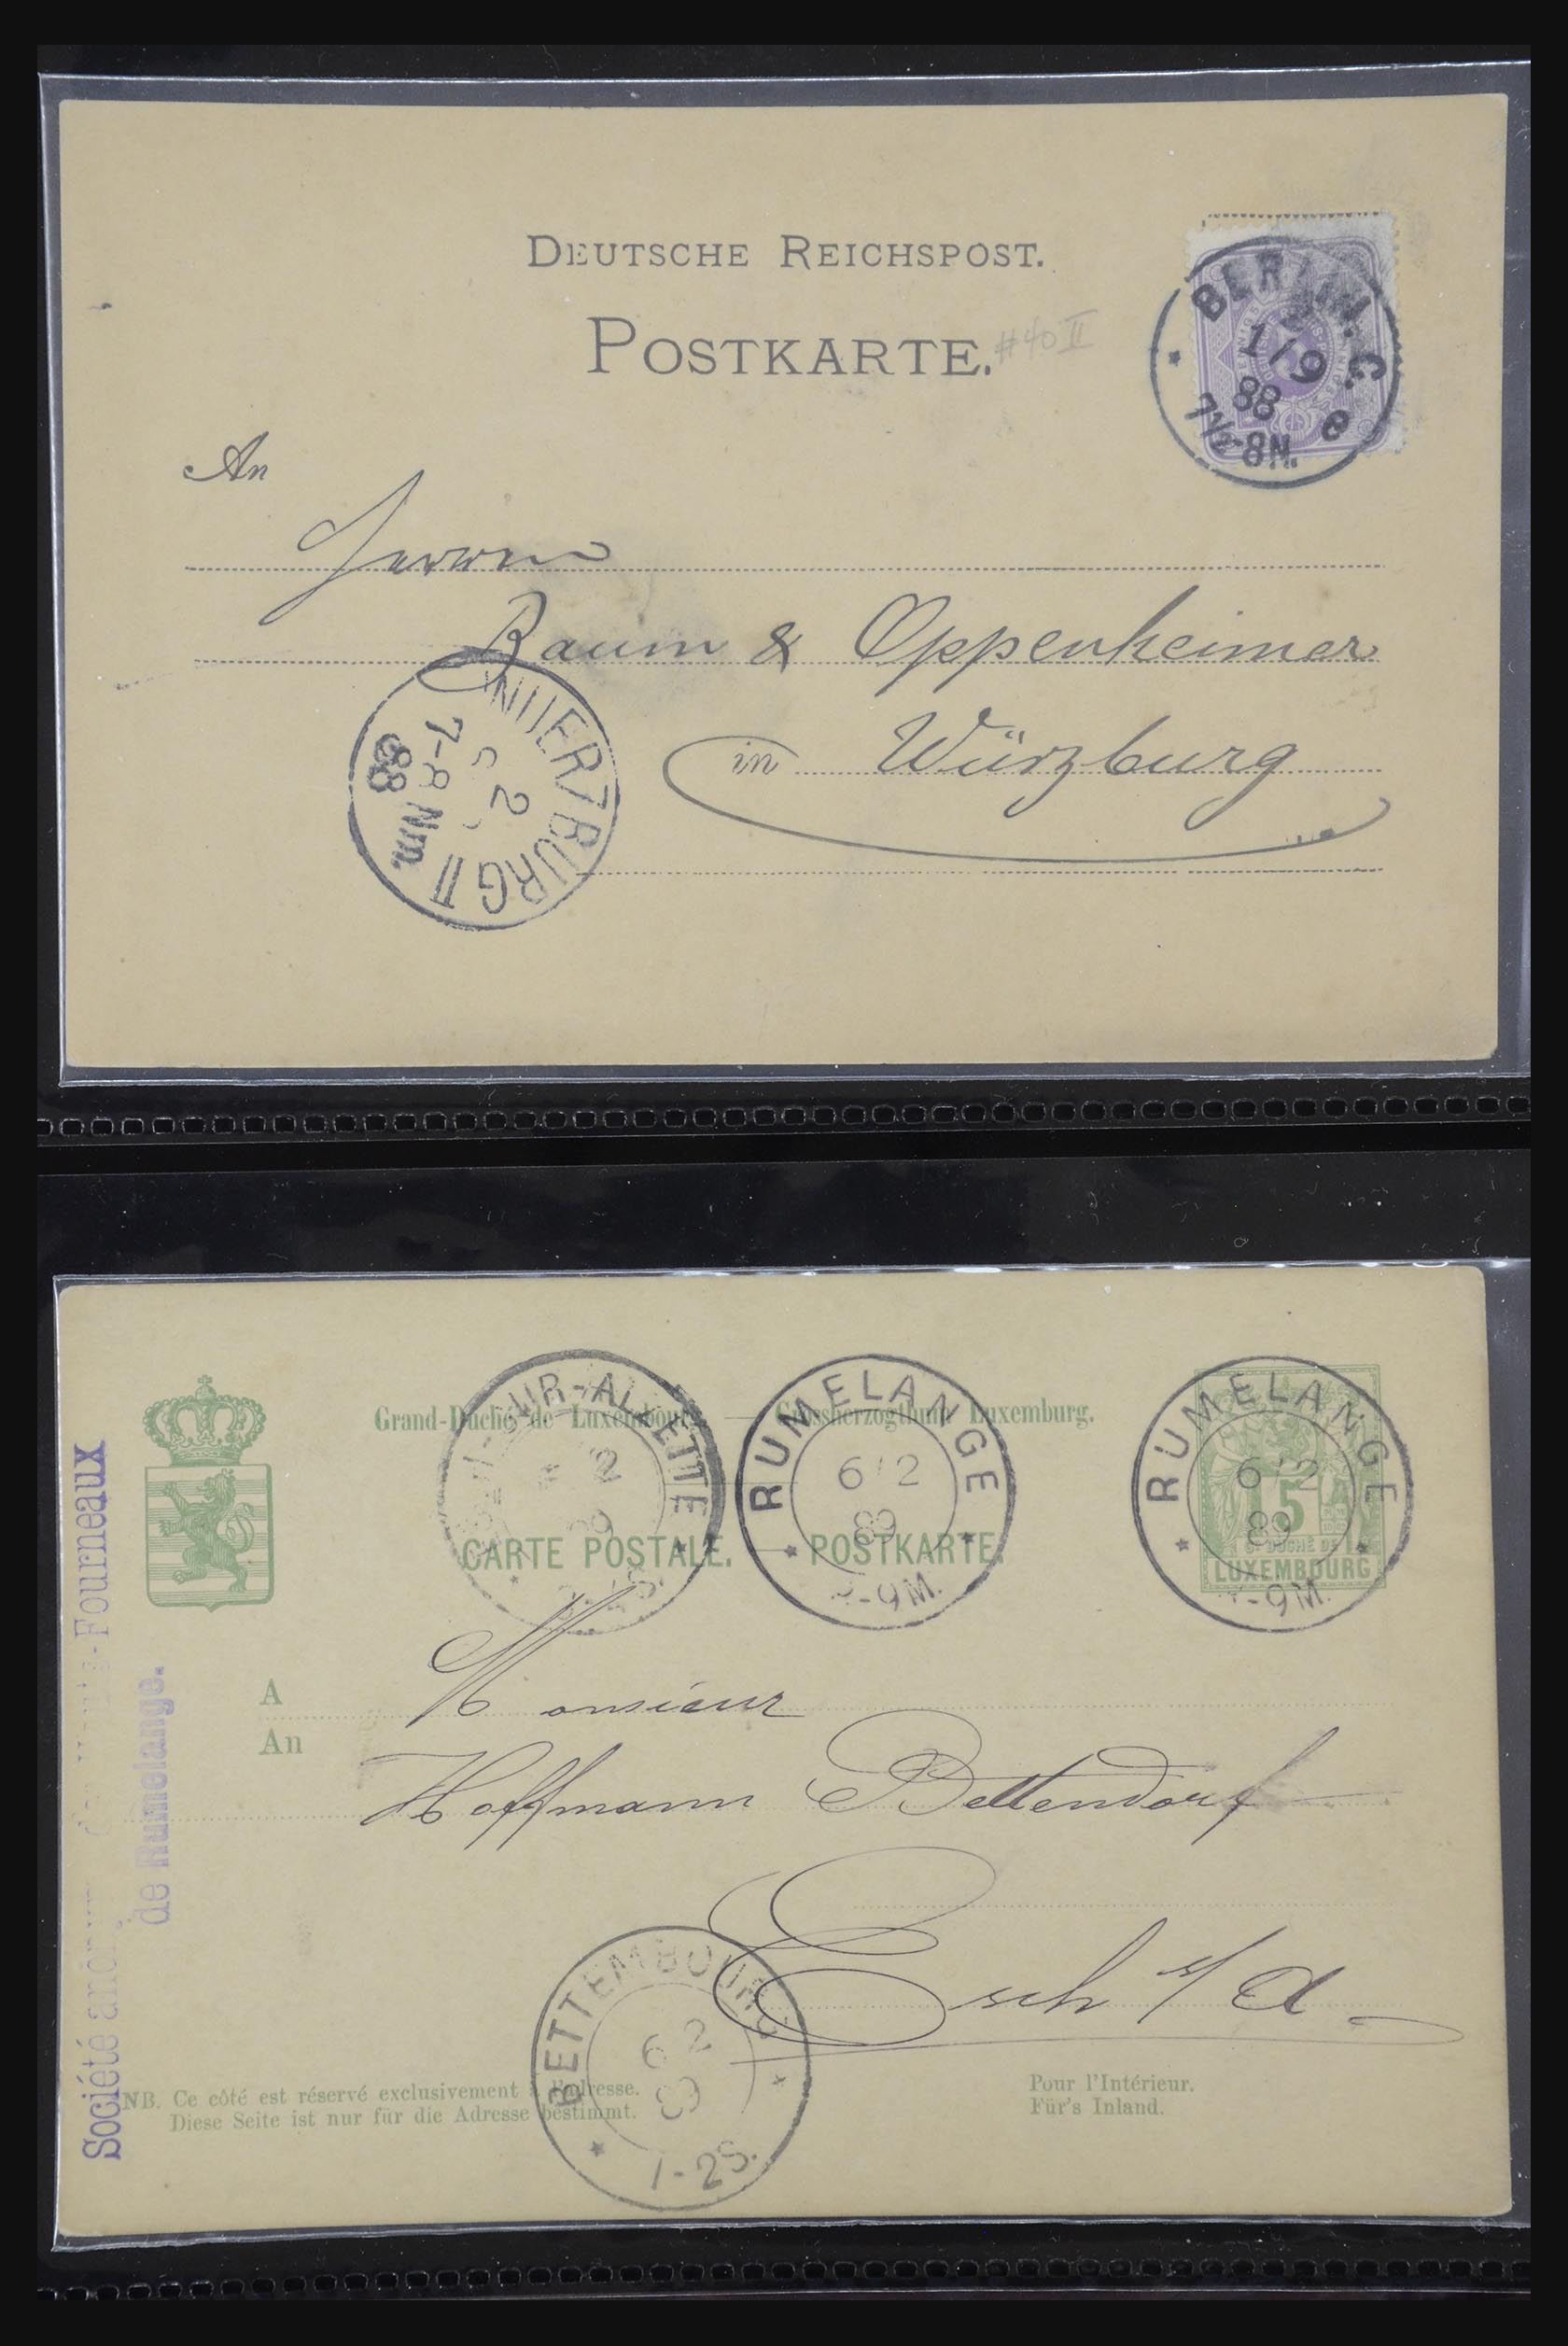 DEUTSCHE REICHSPOST.
POSTKARTE.
#40 II
BERLIN. C.
1/9
88
7½-8N.
e
An
Herren
Baum & Oppenheimer
in Würzburg
WUERZBURG II
2
7-8 Nm.
88
Grand-Duché de Luxembourg. — Grossherzogthum Luxemburg.
CARTE POSTALE. — POSTKARTE.
SUR-ALZETTE
2
RUMELANGE
6 2
89
-9M.
RUMELANGE
6 2
89
-9M.
5
GD DUCHÉ DE
LUXEMBOURG
Société anonyme des Hauts-Fourneaux
de Rumelange.
A
An
Monsieur
Hoffmann Bettendorf
Esch s/A
BETTEMBOURG
6 2
89
1-2S.
NB. Ce côté est réservé exclusivement à l'adresse.
Diese Seite ist nur für die Adresse bestimmt.
Pour l'Intérieur.
Für's Inland.